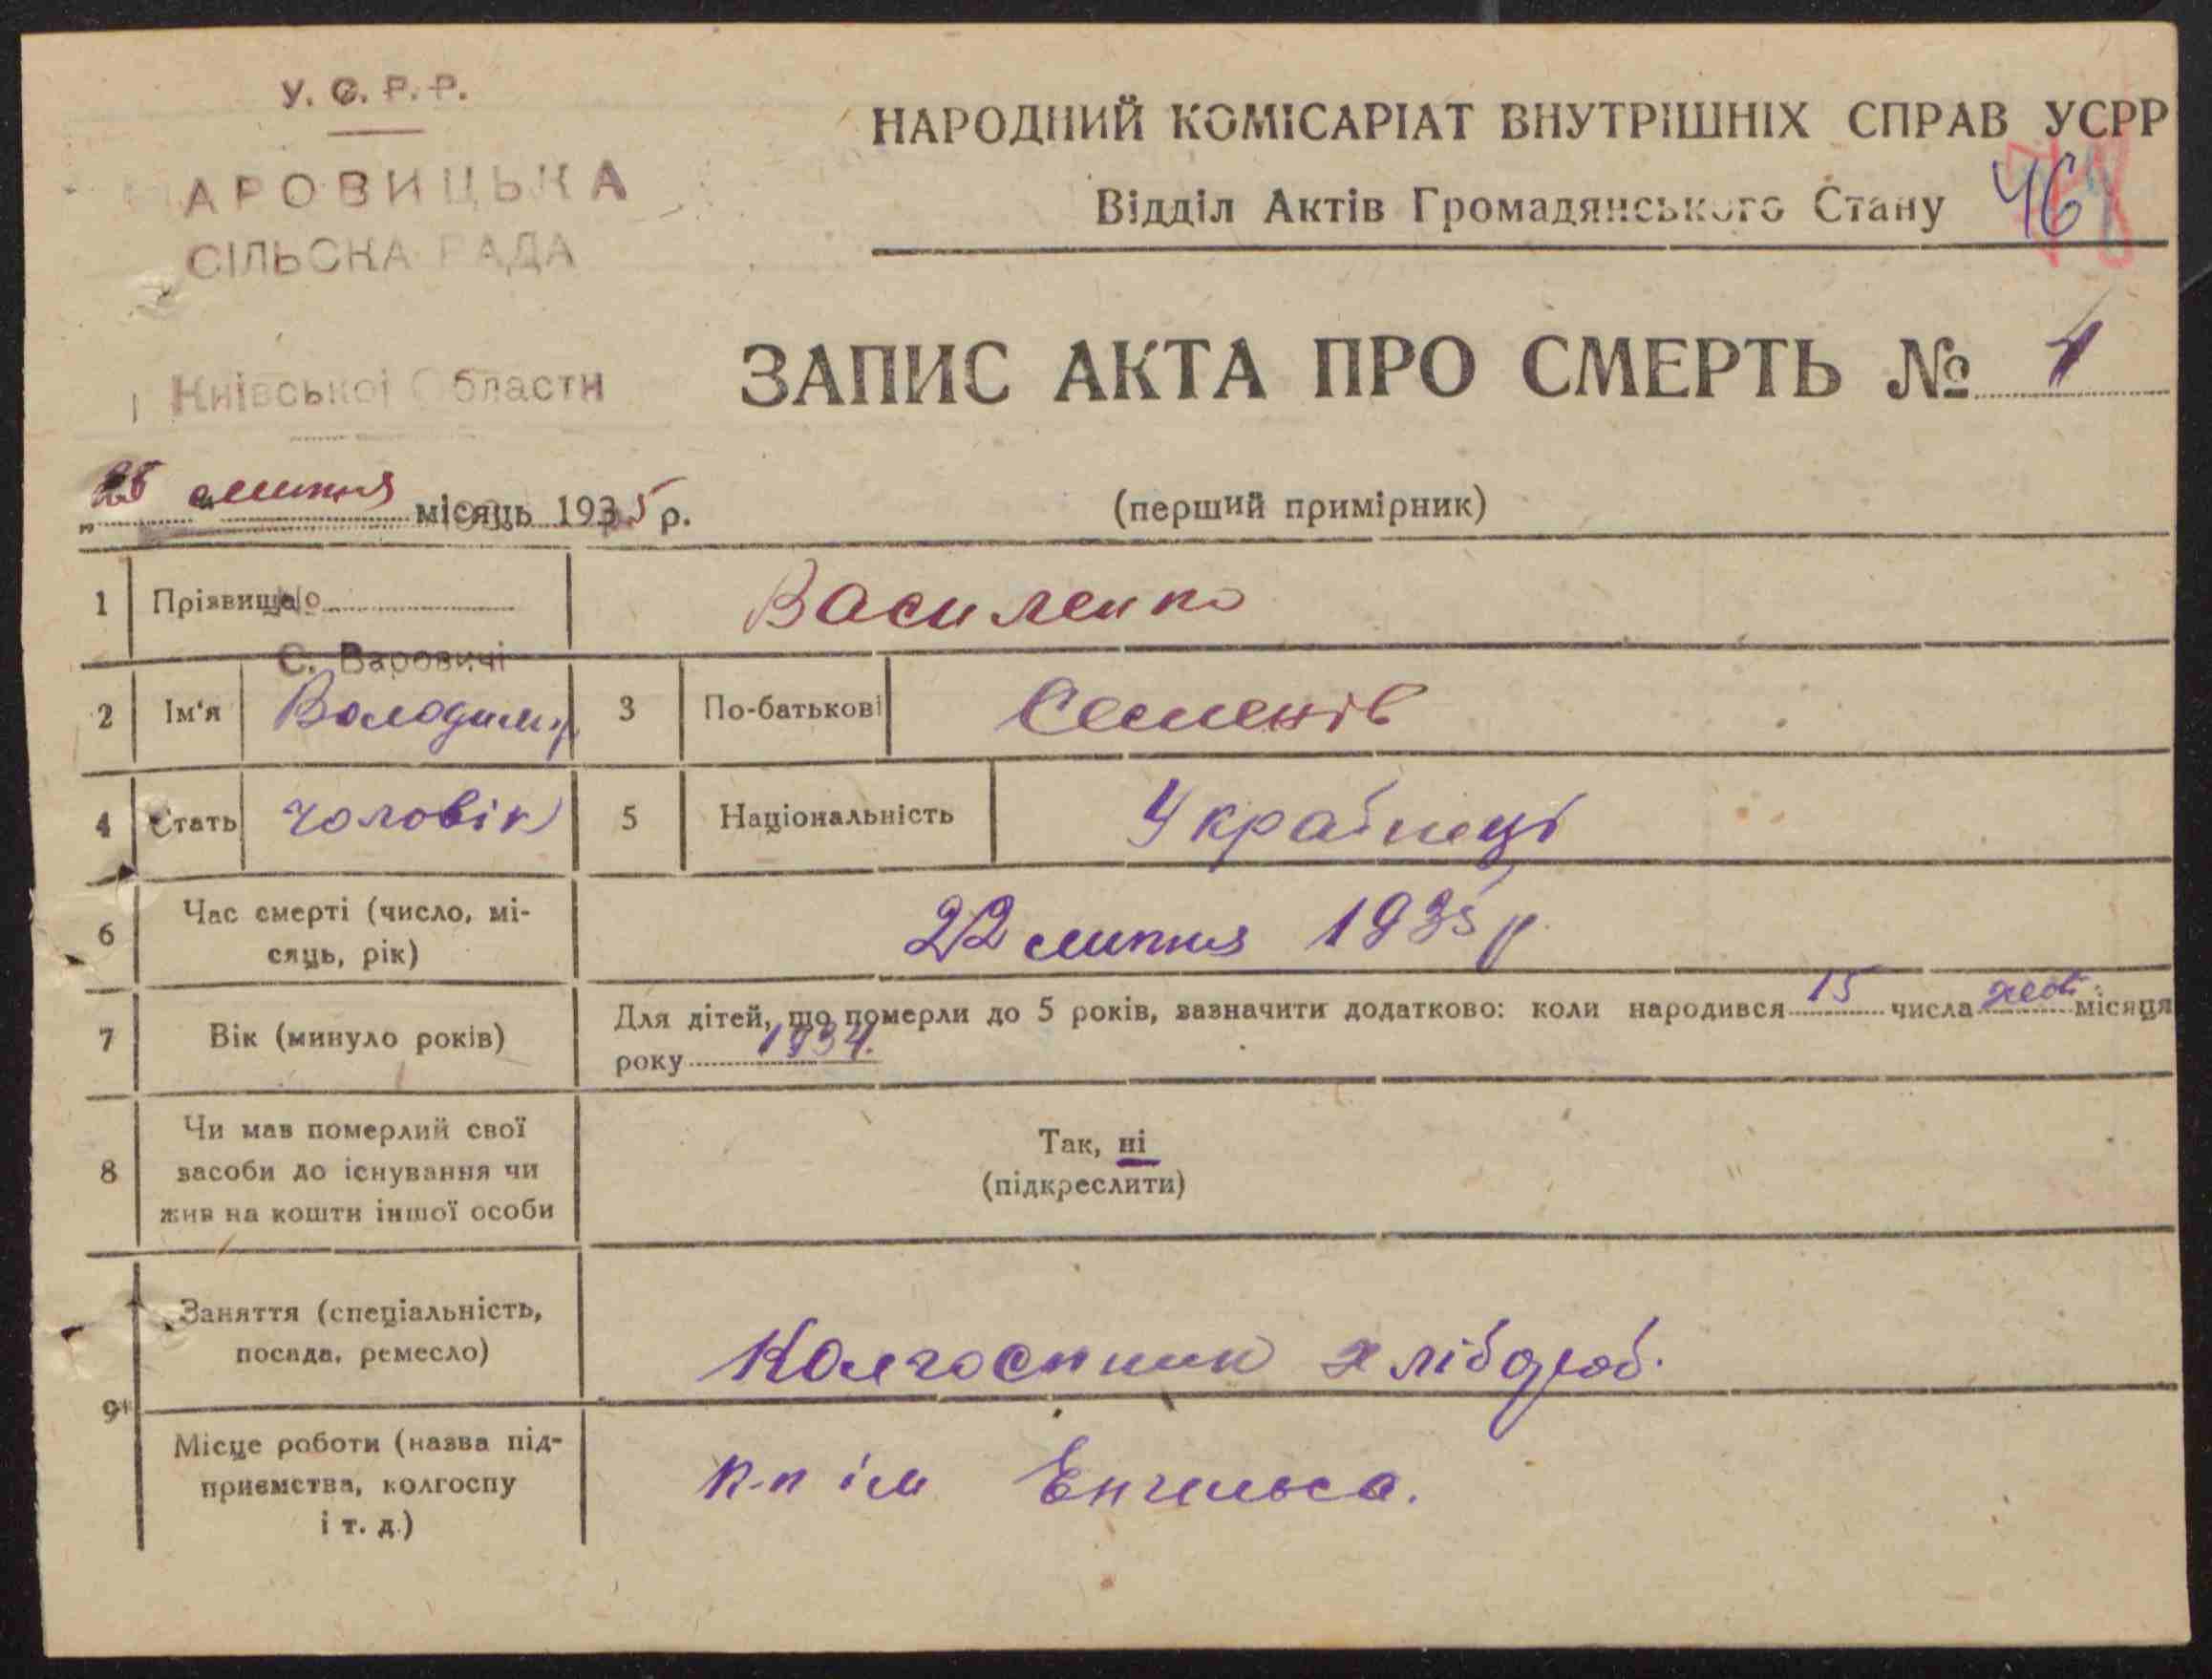 У. С. Р. Р.
АРОВИЦЬКА
СІЛЬСКА РАДА
Київської Области
НАРОДНИЙ КОМІСАРІАТ ВНУТРІШНІХ СПРАВ УСРР
Відділ Актів Громадянського Стану 46
ЗАПИС АКТА ПРО СМЕРТЬ № 1
„25“ липня місяць 1935 р.
(перший примірник)
1 Прізвище Василенко
С. Варовичі
2 Ім'я Володимир 3 По-батькові Семенів
4 Стать чоловік 5 Національність Українець
6 Час смерті (число, мі-
сяць, рік) 22 липня 1935 р.
7 Вік (минуло років) Для дітей, що померли до 5 років, зазначити додатково: коли народився 15 числа жовт. місяця
року 1934.
8 Чи мав померлий свої
засоби до існування чи
жив на кошти іншої особи
Так, ні
(підкреслити)
9 Заняття (спеціальність,
посада, ремесло) Колгоспник хлібороб.
Місце роботи (назва під-
приємства, колгоспу
і т. д.) к-п ім Енгельса.